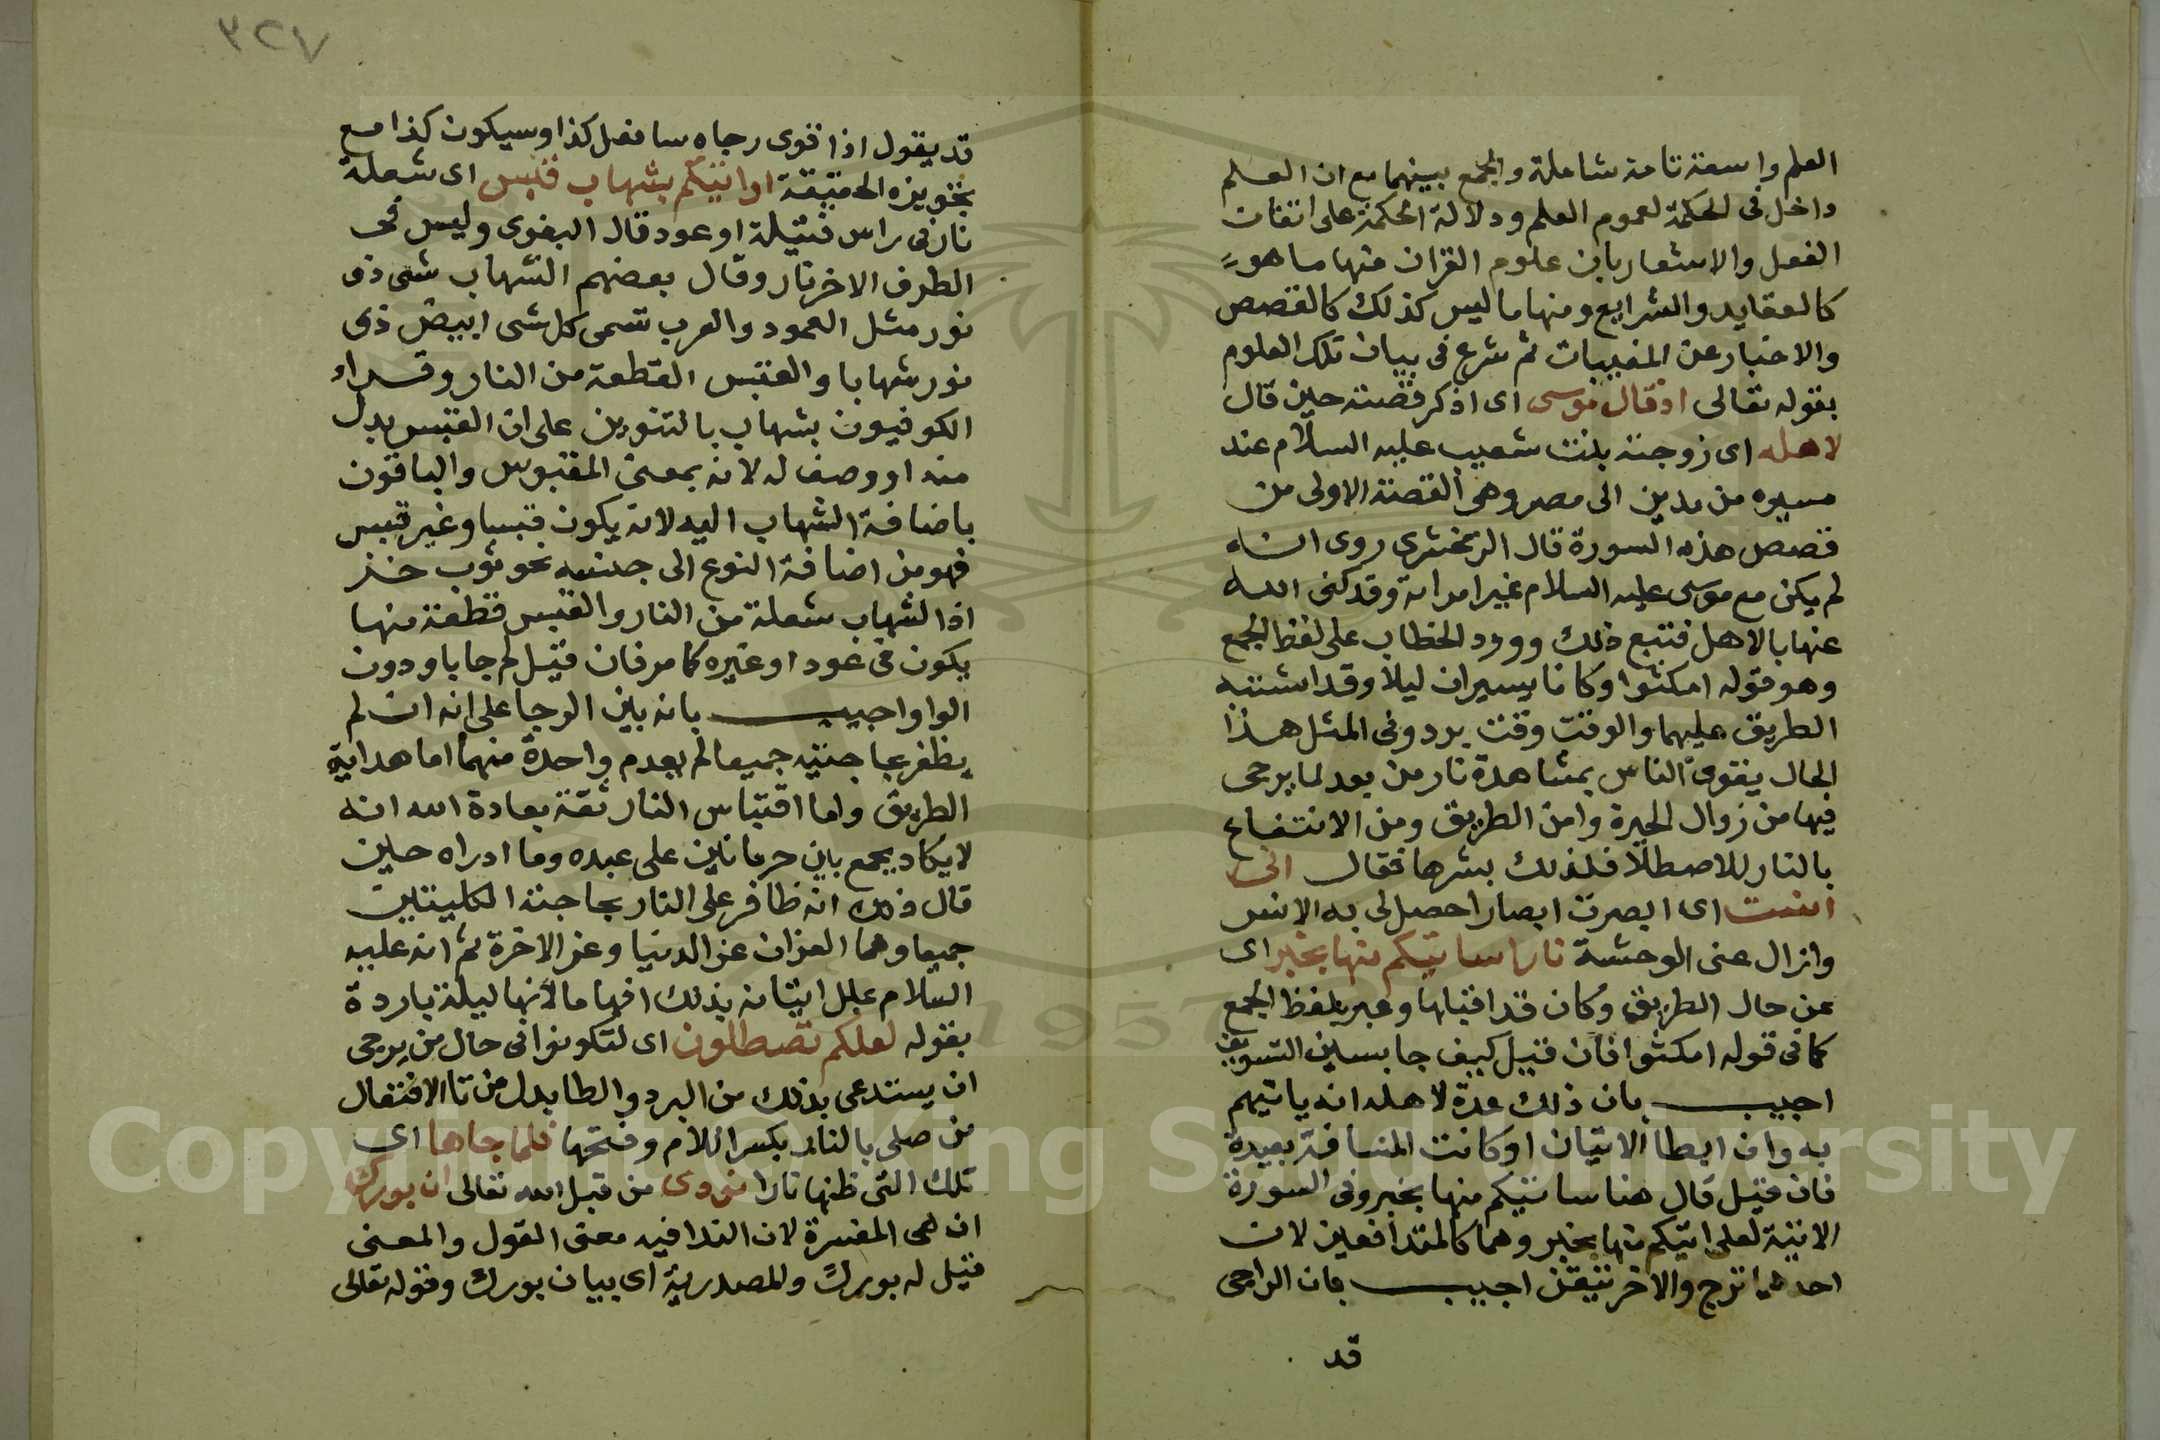 العلم واسعة تامة شاملة والجمع بينهما مع ان العلم
داخل فى الحكمة لعموم العلم ودلالة الحكمة على اتقان
الفعل والاشعار بان علوم القران منها ما هو
كالعقايد والشرايع ومنها ما ليس كذلك كالقصص
والاخبار عن المغيبات ثم شرع فى بيان تلك العلوم
بقوله تعالى اذ قال موسى اى اذكر قصته حين قال
لاهله اى زوجته بنت شعيب عليه السلام عند
مسيره من مدين الى مصر وهى القصة الاولى من
قصص هذه السورة قال الزمخشرى روى انه
لم يكن مع موسى عليه السلام غير امراته وقد كنى الله
عنها بالاهل فتبع ذلك وورود الخطاب على لفظ الجمع
وهو قوله امكثوا وكانا يسيران ليلا وقد اشتبه
الطريق عليهما والوقت وقت برد وفى المثل هذا
الحال يقوى الناس بمشاهدة نار من بعد لما يرجى
فيها من زوال الحيرة وامن الطريق ومن الانتفاع
بالنار للاصطلا فلذلك بشرها فقال انى
انست اى ابصرت ابصارا حصل لى به الانس
وازال عنى الوحشة نارا ساتيكم منها بخبر اى
عن حال الطريق وكان قد اضلها وعبر بلفظ الجمع
كما فى قوله امكثوا فان قيل كيف جا بسين التسويف
اجيب بان ذلك عدة لاهله انه ياتيهم
به وان ابطا الاتيان او كانت المسافة بعيدة
فان قيل قال هنا ساتيكم منها بخبر وفى السورة
الاتية لعلى اتيكم منها بخبر وهما كالمتدافعين لان
احدهما ترج والاخر تيقن اجيب بان الراجى
قد
٣٢٧
قد يقول اذا قوى رجاه سافعل كذا وسيكون كذا مع
تجويزه الخيبة او اتيكم بشهاب قبس اى شعلة
نار فى راس فتيلة او عود قال البغوى وليس فى
الطرف الاخر نار وقال بعضهم الشهاب شى ذى
نور مثل العمود والعرب تسمى كل شى ابيض ذى
نور شهابا والقبس القطعة من النار وقراء
الكوفيون بشهاب بالتنوين على ان القبس بدل
منه او وصف له لانه بمعنى المقبوس والباقون
باضافة الشهاب اليه لانه يكون قبسا وغير قبس
فهو من اضافة النوع الى جنسه نحو ثوب خز
اذ الشهاب شعلة من النار والقبس قطعة منها
يكون فى عود او غيره كما مر فان قيل لم جا باو دون
الواو اجيب بانه بين الرجا على انه ان لم
يظفر بحاجتيه جميعا لم يعدم واحدة منهما اما هداية
الطريق واما اقتباس النار ثقة بعادة الله انه
لا يكاد يجمع بين حرمانين على عبده وما ادراه حين
قال ذلك انه ظافر على النار بحاجته الكليتين
جميعا وهما العزان عز الدنيا وعز الاخرة ثم انه عليه
السلام علل اتيانه بذلك افهاما لانها ليلة باردة
بقوله لعلكم تصطلون اى لتكونوا فى حال من يرجى
ان يستدعى بذلك من البرد والطا بدل من تا الافتعال
من صلى بالنار بكسر اللام وفتحها فلما جاها اى
تلك التى ظنها نارا نودى من قبل الله تعالى ان بورك
ان هى المفسرة لان الندا فيه معنى القول والمعنى
قيل له بورك والمصدرية اى بيان بورك وقوله تعالى
Copyright © King Saud University
1957